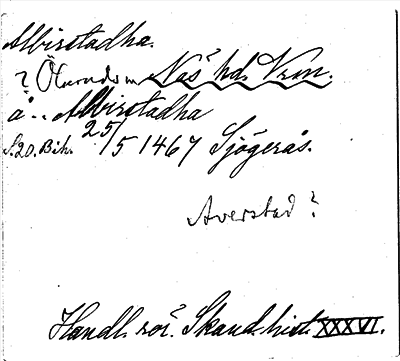 Albirstadha.
? Ölserudsn Näs hd. Vrm.
å.. Albirstadha
S.20. Bih. 25/5 1467 Sjögerås.
Averstad?
Handl. rör. Skand. hist. XXXVI.